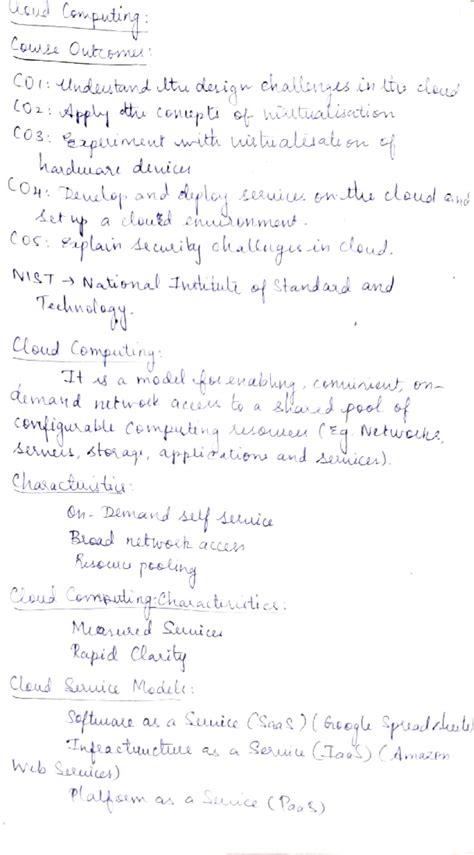 Cloud Computing:
Course Outcomes:
CO1: Understand the design challenges in the cloud
CO2: Apply the concepts of virtualisation
CO3: Experiment with virtualisation of
hardware devices
CO4: Develop and deploy services on the cloud and
set up a cloud environment.
CO5: Explain security challenges in cloud.
NIST → National Institute of Standard and
Technology.
Cloud Computing:
It is a model for enabling, convenient, on-
demand network access to a shared pool of
configurable computing resources (Eg. Networks,
servers, storage, applications and services).
Characteristics:
On-Demand self service
Broad network access
Resource pooling
Cloud Computing Characteristics:
Measured Services
Rapid Clarity
Cloud Service Models:
Software as a Service (SaaS) (Google Spreadsheets)
Infractructure as a Service (IaaS) (Amazon
Web Services)
Platform as a Service (PaaS)